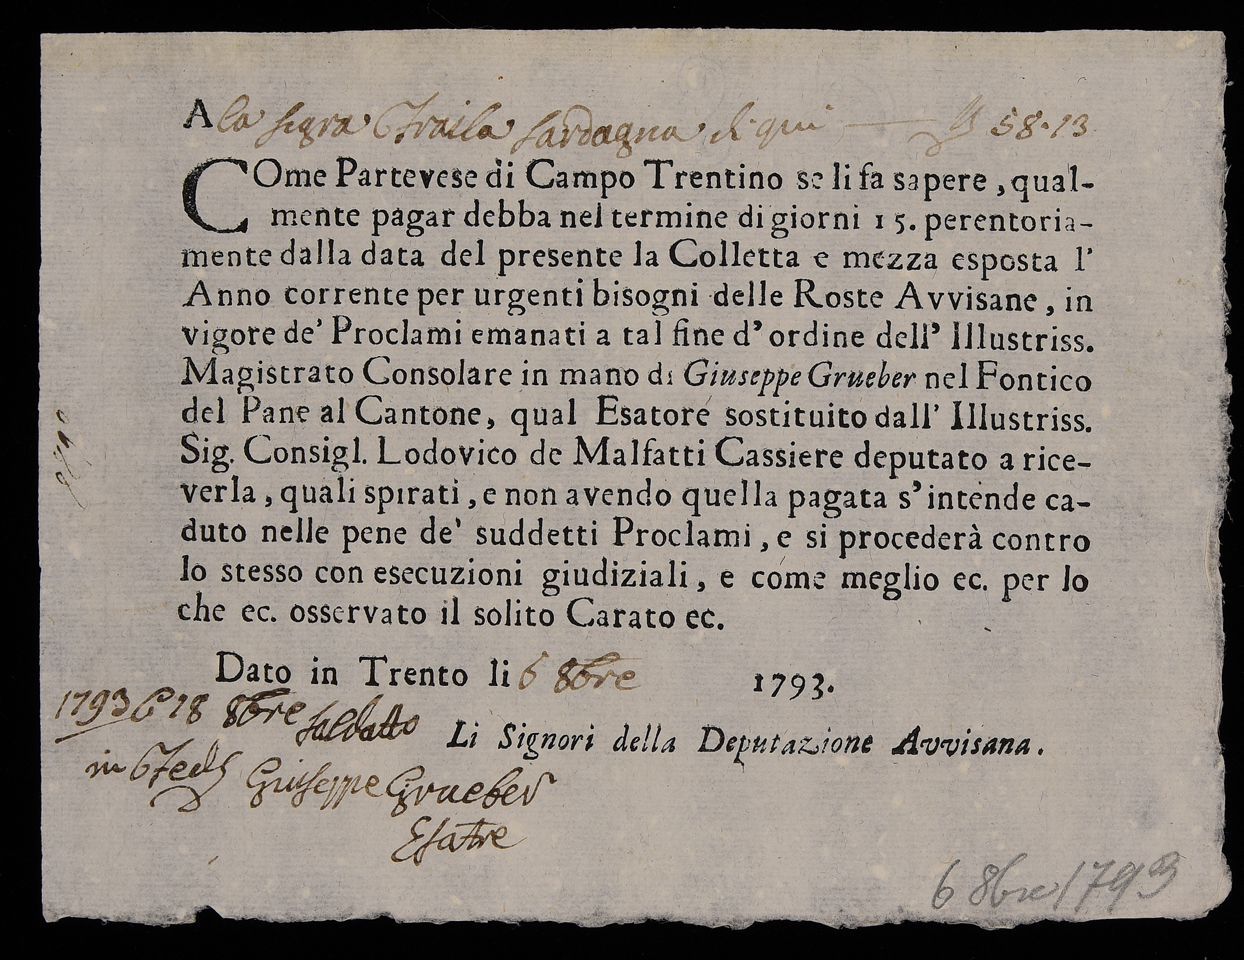 A la sigra Traila Sardagna di qui 58.13
COme Partevese di Campo Trentino se li fa sapere, qual-
mente pagar debba nel termine di giorni 15. perentoria-
mente dalla data del presente la Colletta e mezza esposta l'
Anno corrente per urgenti bisogni delle Roste Avvisane, in
vigore de' Proclami emanati a tal fine d'ordine dell' Illustriss.
Magistrato Consolare in mano di Giuseppe Grueber nel Fontico
del Pane al Cantone, qual Esatore sostituito dall' Illustriss.
Sig. Consigl. Lodovico de Malfatti Cassiere deputato a rice-
verla, quali spirati, e non avendo quella pagata s'intende ca-
duto nelle pene de' suddetti Proclami, e si procederà contro
lo stesso con esecuzioni giudiziali, e come meglio ec. per lo
che ec. osservato il solito Carato ec.
Dato in Trento li 6 8bre 1793.
1793 18 8bre saldatto
Li Signori della Deputazione Avvisana.
in Giuseppe Grueber
Esatre
6 8bre 1793